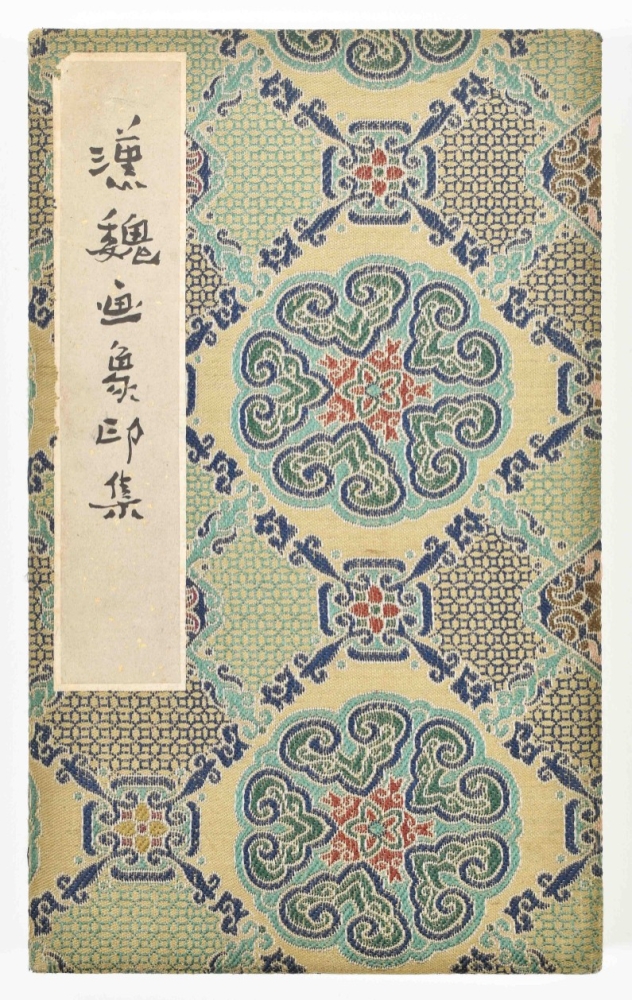 漢魏画象印集